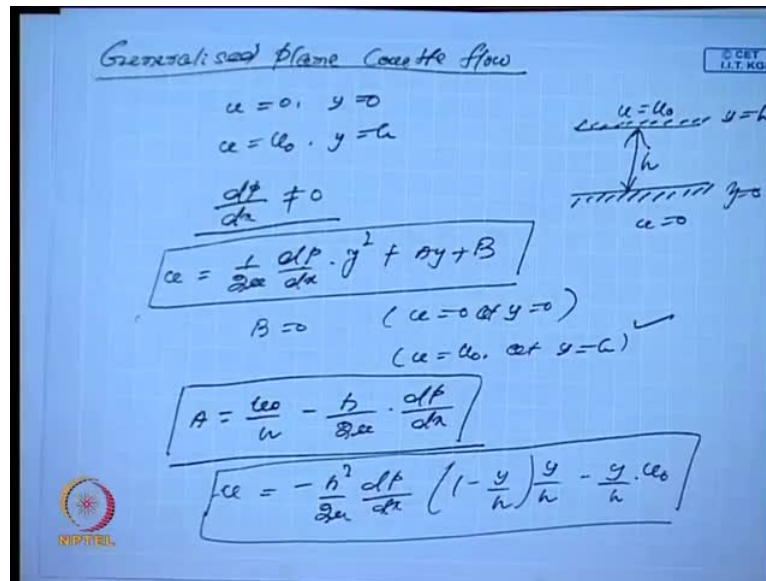 Generalised plane Couette flow
© CET
I.I.T. KG
u = 0, y = 0
u = u₀, y = h
u = u₀ y = h
h
y = 0
u = 0
dp/dx ≠ 0
u = 1/2μ dp/dx · y² + Ay + B
B = 0 (u = 0 at y = 0)
(u = u₀, at y = h) ✓
A = u₀/h - h/2μ · dp/dx
u = -h²/2μ dp/dx (1 - y/h) y/h - y/h · u₀
NPTEL